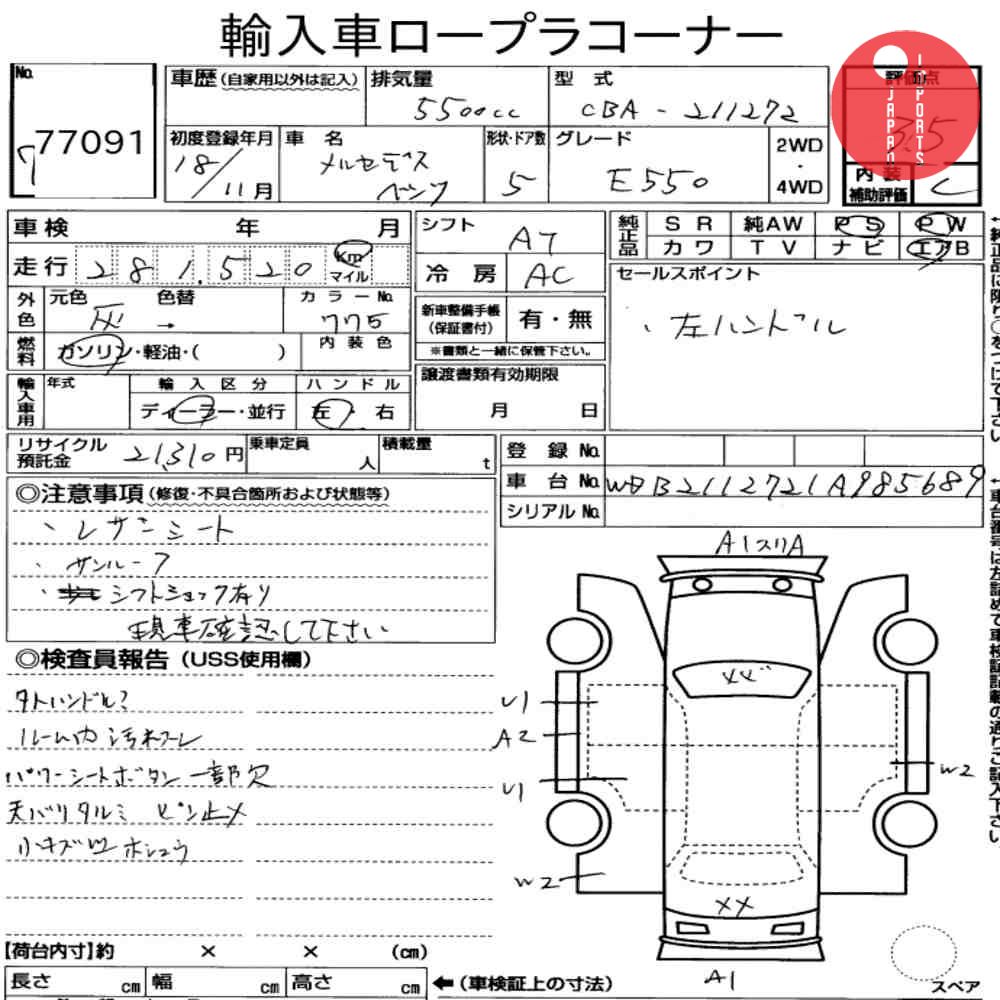 輸入車ロープラコーナー
JAPAN IMPORTS
No.
77091
7
車歴(自家用以外は記入) 排気量 5500cc 型式 CBA-211272
評価点 3.5
初度登録年月 18/11月 車名 メルセデス ベンツ 形状・ドア数 5 グレード E550 2WD・4WD
内装補助評価 C
車検 年 月
走行 281,520 Km マイル
外色 元色 灰 色替 → カラーNo. 775
燃料 ガソリン・軽油・( ) 内装色
輸入車用 年式 輸入区分 ディーラー・並行 ハンドル 左・右
シフト A7
冷房 AC
新車整備手帳(保証書付) 有・無
※書類と一緒に保管下さい。
譲渡書類有効期限
月 日
純正品 SR 純AW PS PW
カワ TV ナビ エアB
セールスポイント
、左ハンドル
リサイクル預託金 21,310円 乗車定員 人 積載量 t
登録No.
車台No. WDB2112721A985689
シリアルNo.
◎注意事項(修復・不具合箇所および状態等)
、レザーシート
、サンルーフ
・シフトショック有り
現車確認して下さい
◎検査員報告(USS使用欄)
タトハンドル?
ルーム内汚れコゲ
パワーシートボタン一部欠
天バリタルミ ピン止メ
小キズ凹ホシュウ
A1スリA
メゾ
U1
A2
U1
W2
W2
XX
A1
【荷台内寸】約 × × (cm)
長さ cm 幅 cm 高さ cm ←(車検証上の寸法)
スペア
←純正品に限り○をつけて下さい
←車台番号は左詰めで車検証記載の通りご記入下さい。